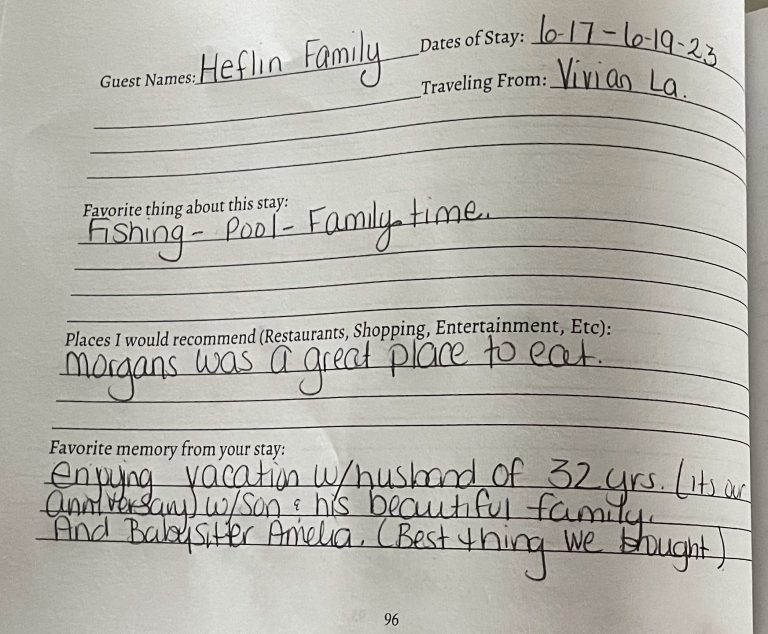 Guest Names: Heflin Family
Dates of Stay: 6-17-6-19-23
Traveling From: Vivian La.
Favorite thing about this stay:
Fishing- Pool- Family time.
Places I would recommend (Restaurants, Shopping, Entertainment, Etc):
Morgans was a great place to eat.
Favorite memory from your stay:
enjoying vacation w/husband of 32 yrs. (its our
anniversary) w/son & his beautiful family.
And Babysitter Amelia. (Best thing we bought)
96